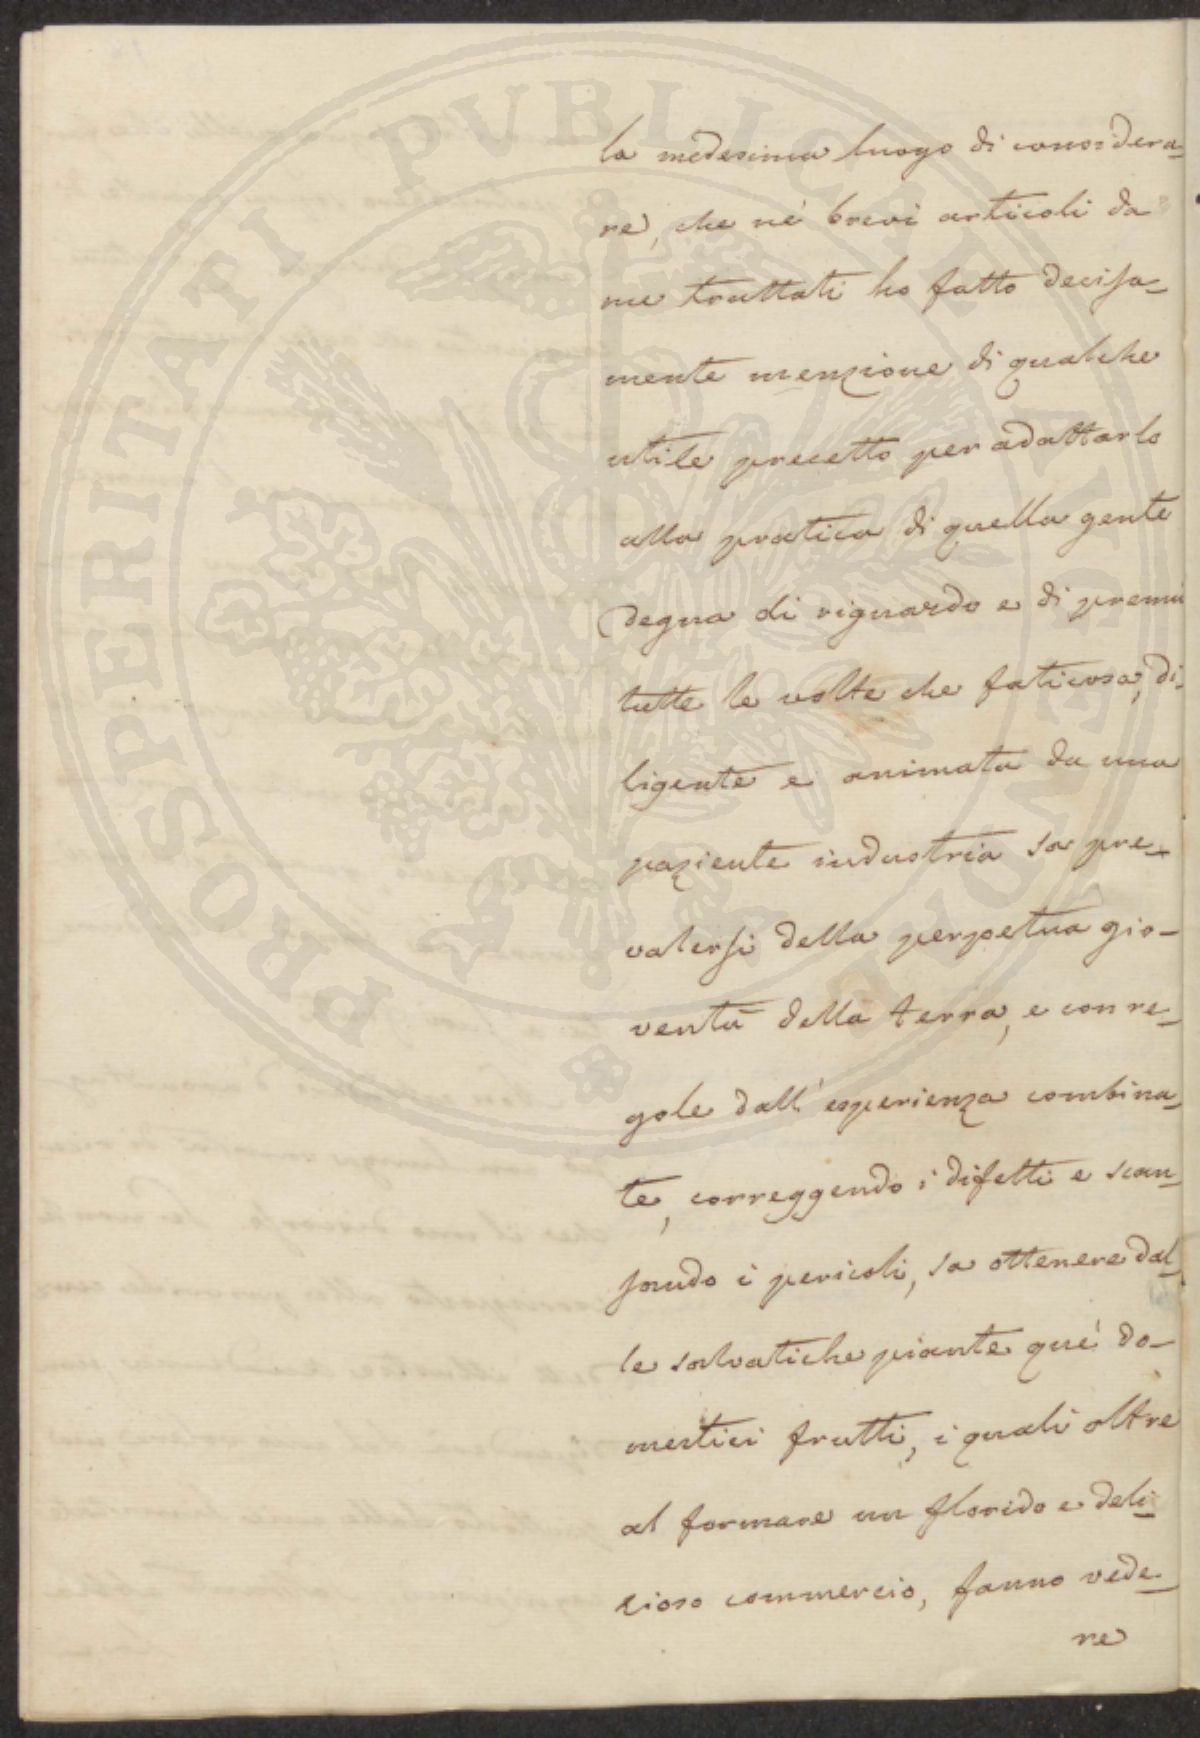 PROSPERITATI PUBLICAE AUGENDAE
la medesima luogo di considera-
re, che ne' brevi articoli da
me trattati ho fatto decisa-
mente menzione di qualche
utile precetto per adattarlo
alla pratica di quella gente
degna di riguardo e di premii
tutte le volte che faticosa, di-
ligente e animata da una
paziente industria sa pre-
valersi della perpetua gio-
ventù della terra, e con re-
gole dall' esperienza combina-
te, correggendo i difetti e scan-
sando i pericoli, sa ottenere dal-
le salvatiche piante que' do-
mestici frutti, i quali oltre
al formare un florido e deli-
zioso commercio, fanno vede-
re